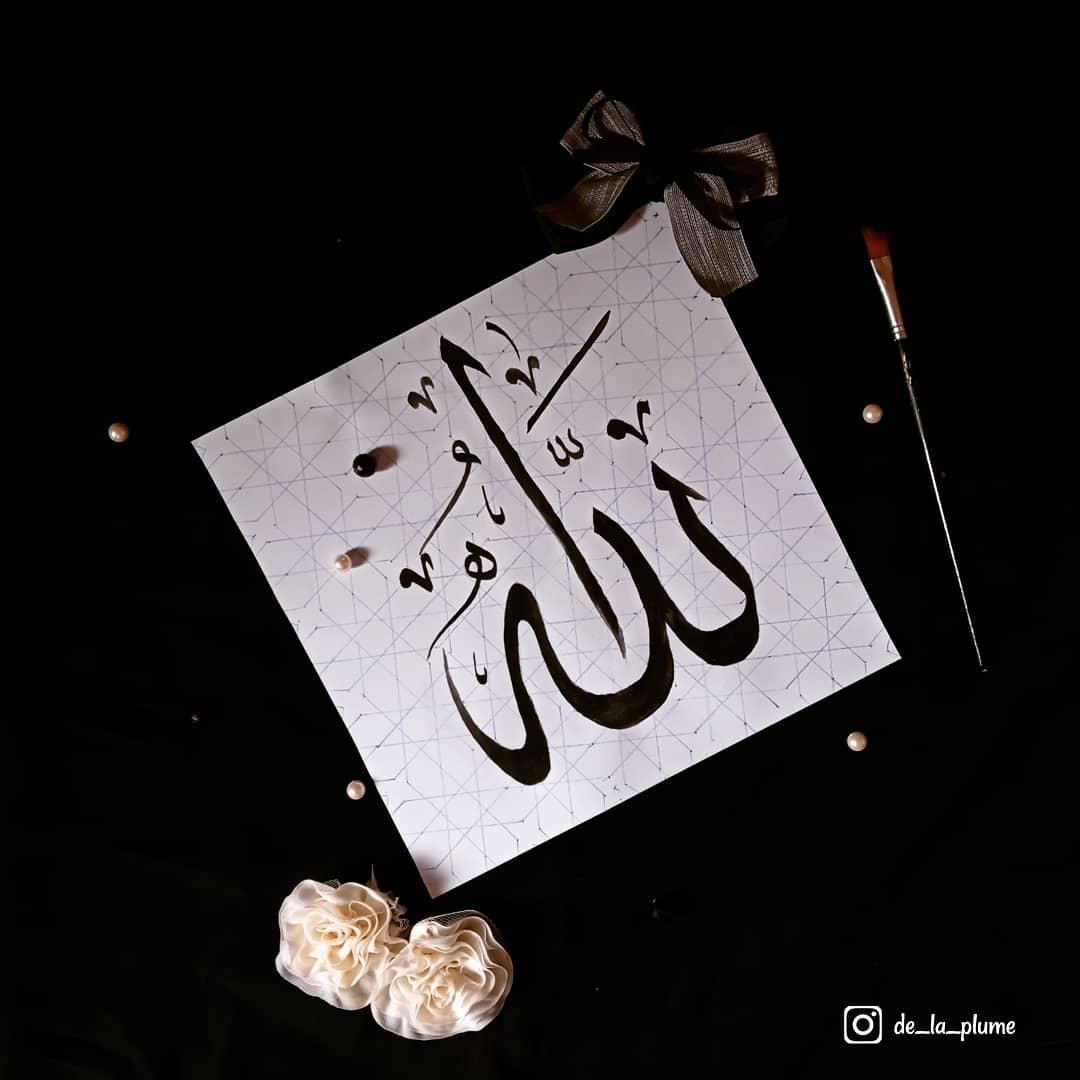 الله
de_la_plume